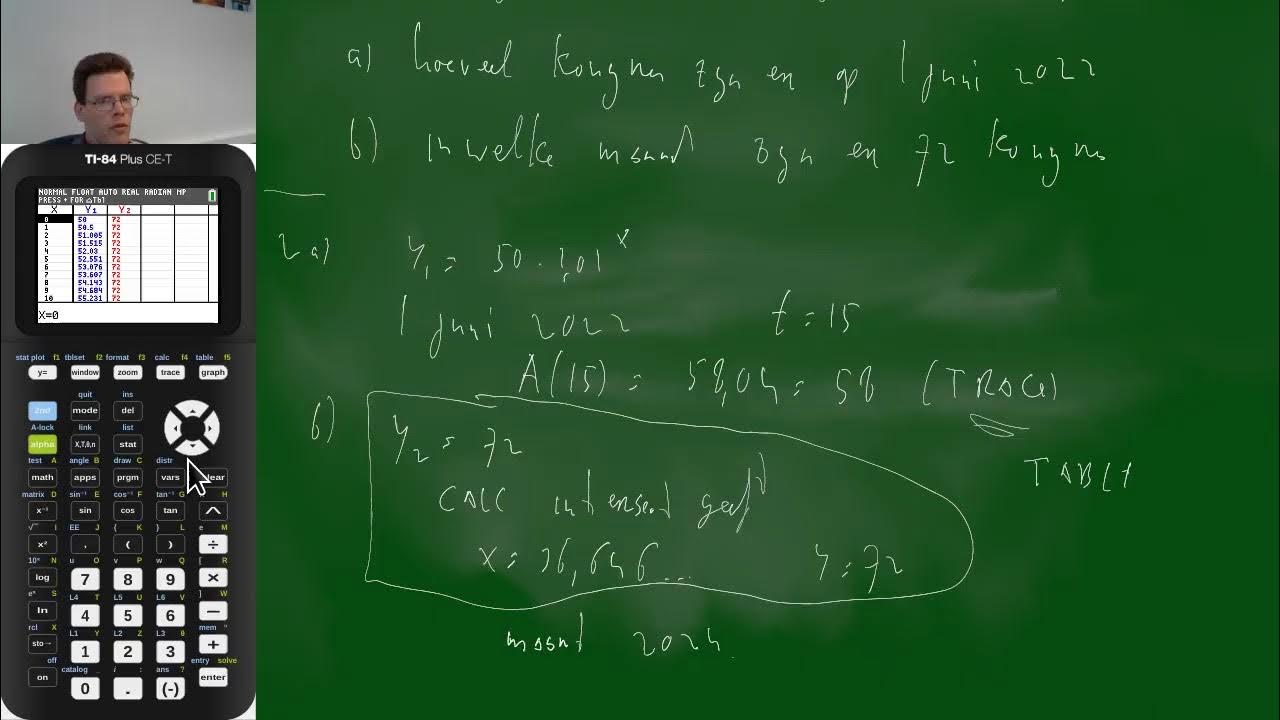 a) hoeveel konijnen zijn er op 1 juni 2022
b) in welke maand zijn er 72 konijnen
2a) Y₁ = 50 · 1,01ˣ
1 juni 2022 t = 15
A(15) = 58,04 = 58 (TRACE)
TABLE
b) Y₂ = 72
CALC intersect geeft
X = 36,646... Y = 72
maart 2024
TI-84 Plus CE-T
NORMAL FLOAT AUTO REAL RADIAN MP
PRESS + FOR △Tbl
X Y₁ Y₂
0 50 72
1 50.5 72
2 51.005 72
3 51.515 72
4 52.03 72
5 52.551 72
6 53.076 72
7 53.607 72
8 54.143 72
9 54.684 72
10 55.231 72
X=0
stat plot f1 tblset f2 format f3 calc f4 table f5
y= window zoom trace graph
quit ins
2nd mode del
A-lock link list
alpha X,T,θ,n stat
test A angle B draw C distr
math apps prgm vars clear
matrix D sin⁻¹ E cos⁻¹ F tan⁻¹ G H
x⁻¹ sin cos tan ^
√ I EE J { K } L e M
x² , ( ) ÷
10ˣ N u O v P w Q [ R
log 7 8 9 ×
eˣ S L4 T L5 U L6 V ] W
ln 4 5 6 −
rcl X L1 Y L2 Z L3 θ mem "
sto→ 1 2 3 +
off catalog i : ans ? entry solve
on 0 . (-) enter